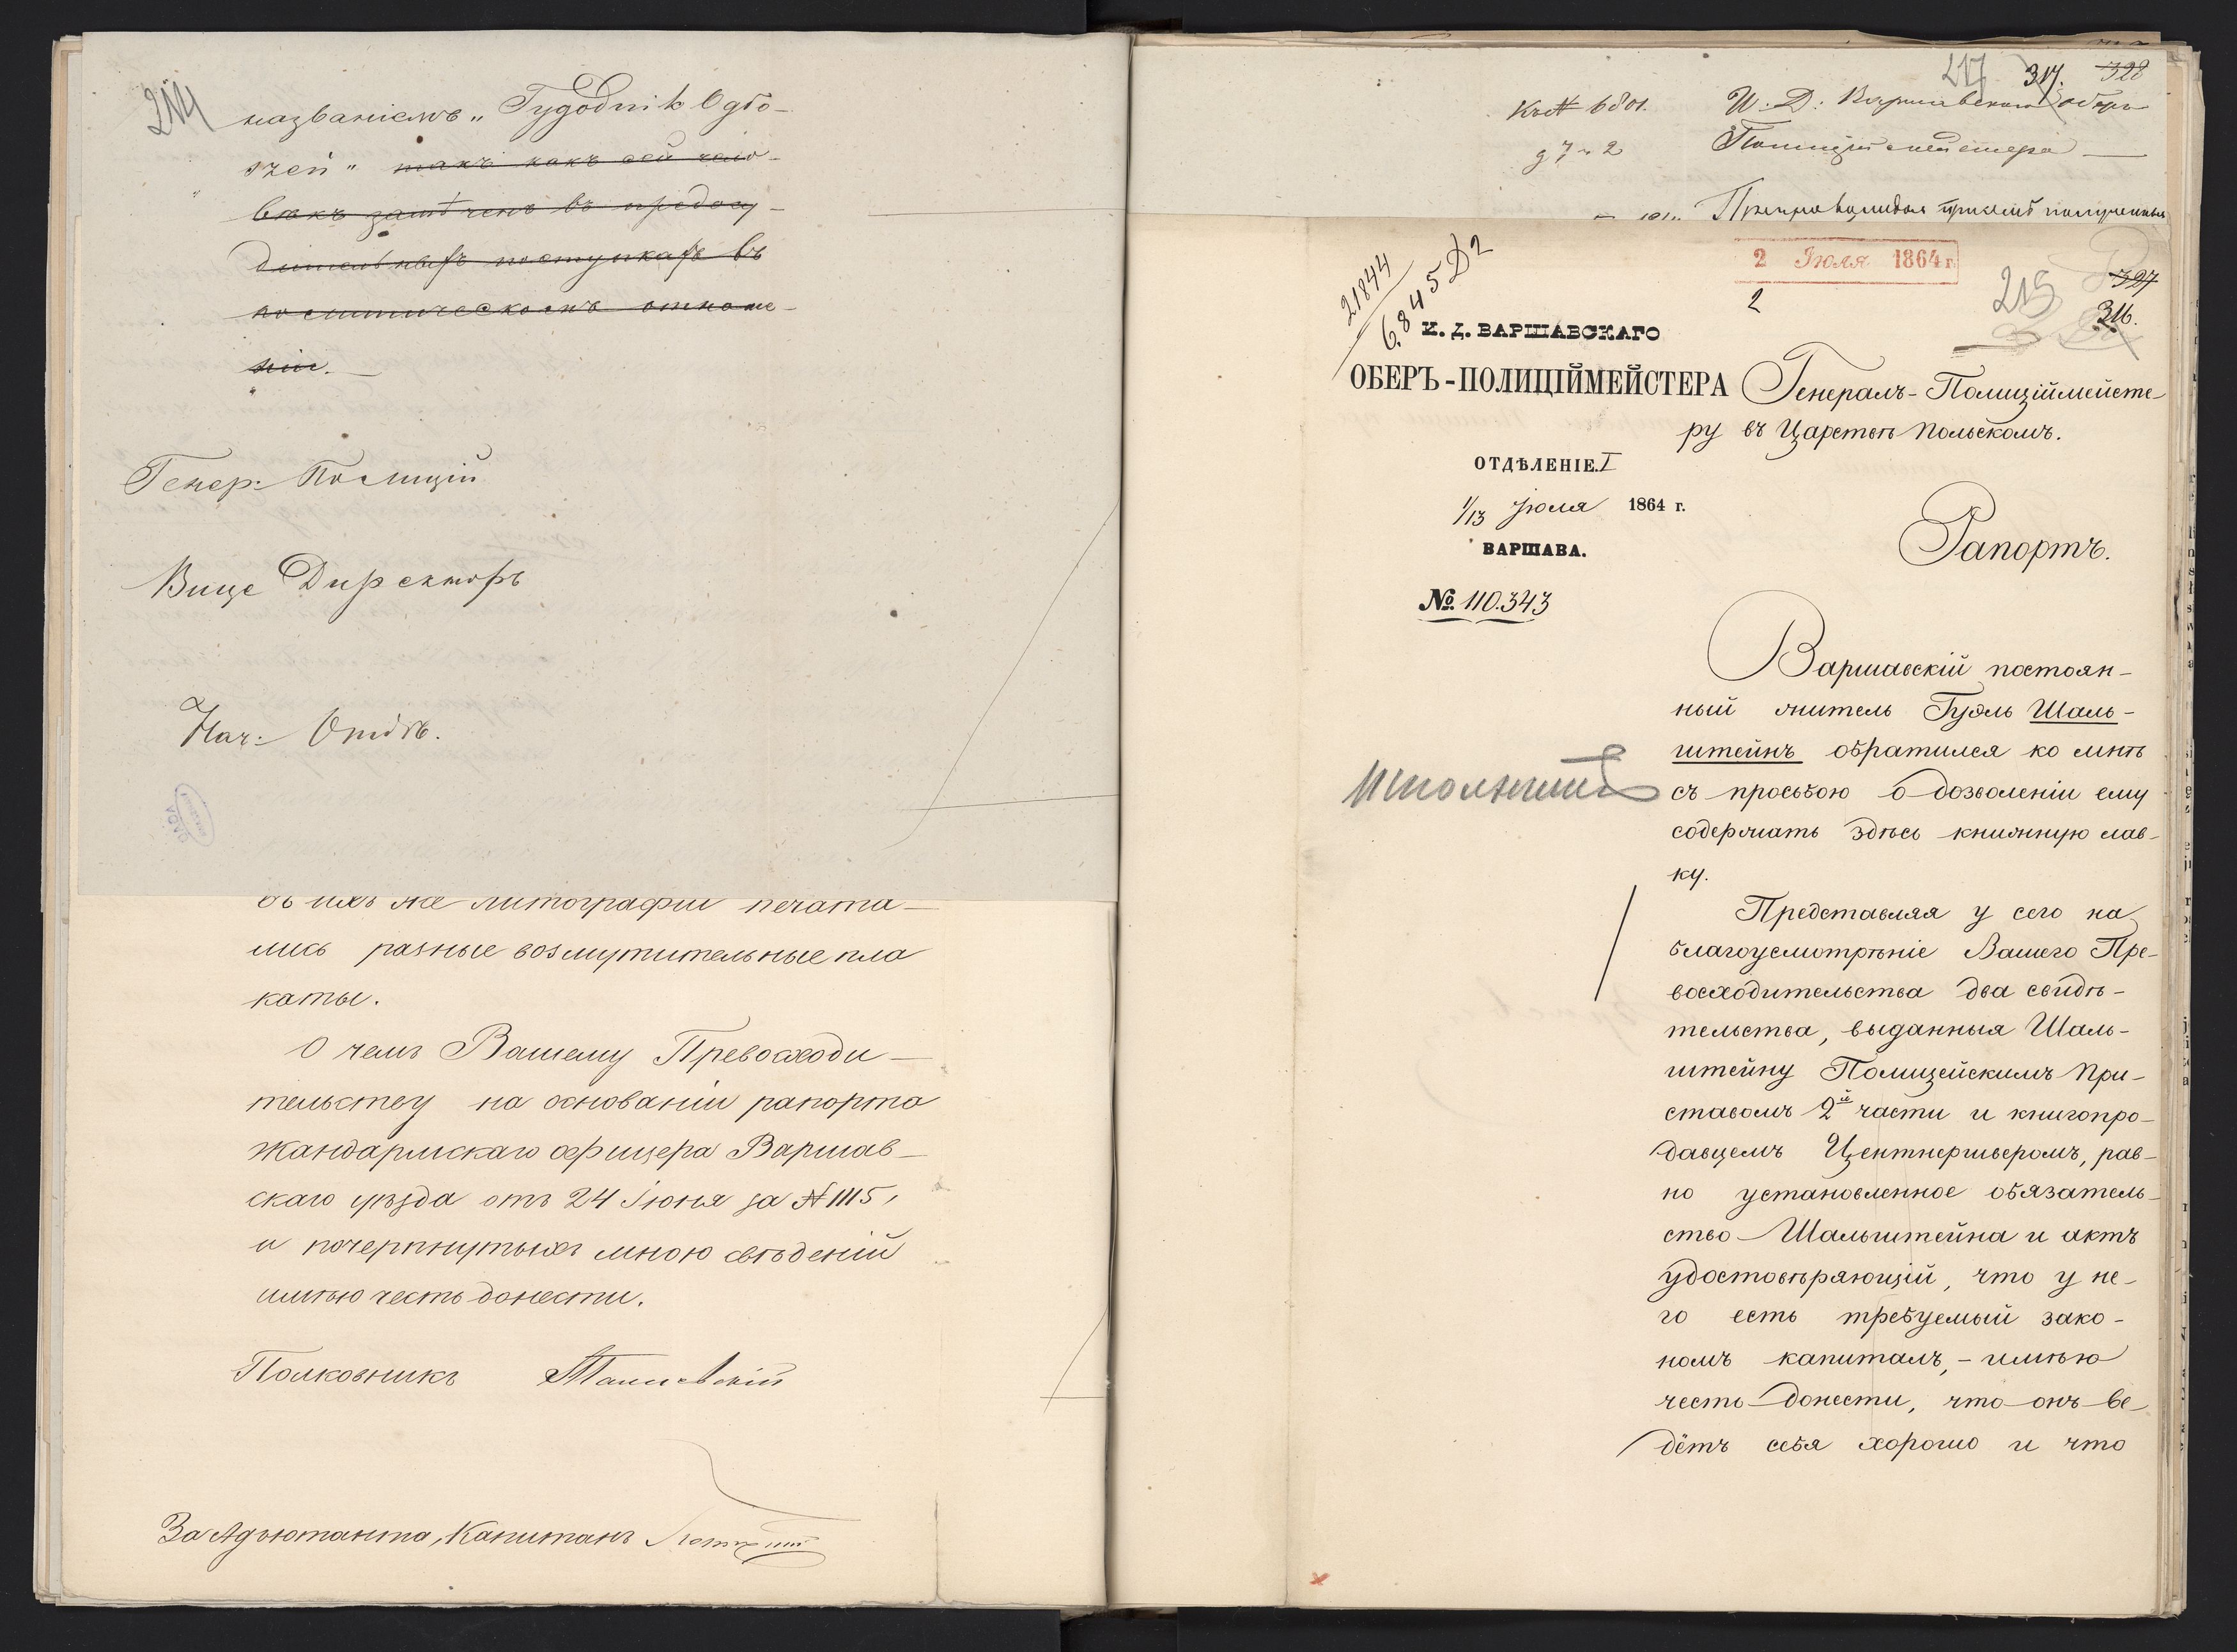 214
названіемъ „Tygodnik Ogło-
szeń" такъ какъ сей чело-
вѣкъ замѣченъ въ предосу-
дительныхъ поступкахъ въ
политическомъ отноше-
ніи.
Генер: Полицій
Вице Директоръ
Нач: Отдѣ.
въ ихъ же литографіи печата-
лись разные возмутительные пла
каты.
О чемъ Вашему Превосходи-
тельству на основаніи рапорта
Жандармскаго офицера Варшав-
скаго уѣзда отъ 24 Іюня за № 1115,
и почерпнутыхъ мною свѣденій
имѣю честь донести.
Полковникъ
За Адъютанта, Капитанъ
217 317. 328
Къ № 6801.
И. Д. Варшавскаго Оберъ
Полиціймейстера
Препровождая при семъ полученныя
21844
6845 Д2
2 Іюля 1864 г.
2
215
327
316.
И. Д. ВАРШАВСКАГО
ОБЕРЪ-ПОЛИЦІЙМЕЙСТЕРА
ОТДѢЛЕНІЕ. I
1/13 Іюля 1864 г.
ВАРШАВА.
№ 110.343
Генералъ-Полиціймейсте-
ру въ Царствѣ Польскомъ.
Рапортъ.
Варшавскій постоян-
ный житель Гузль Шаль-
штейнъ обратился ко мнѣ
съ просьбою о дозволеніи ему
содержать здѣсь книжную лав-
ку.
Представляя у сего на
благоусмотрѣніе Вашего Пре-
восходительства два свидѣ-
тельства, выданныя Шаль-
штейну Полицейскимъ При-
ставомъ 2й части и книгопро-
давцемъ Центнершверомъ, рав-
но установленное обязатель-
ство Шальштейна и актъ
удостовѣряющій, что у не-
го есть требуемый зако-
номъ капиталъ, - имѣю
честь донести, что онъ ве-
дётъ себя хорошо и что